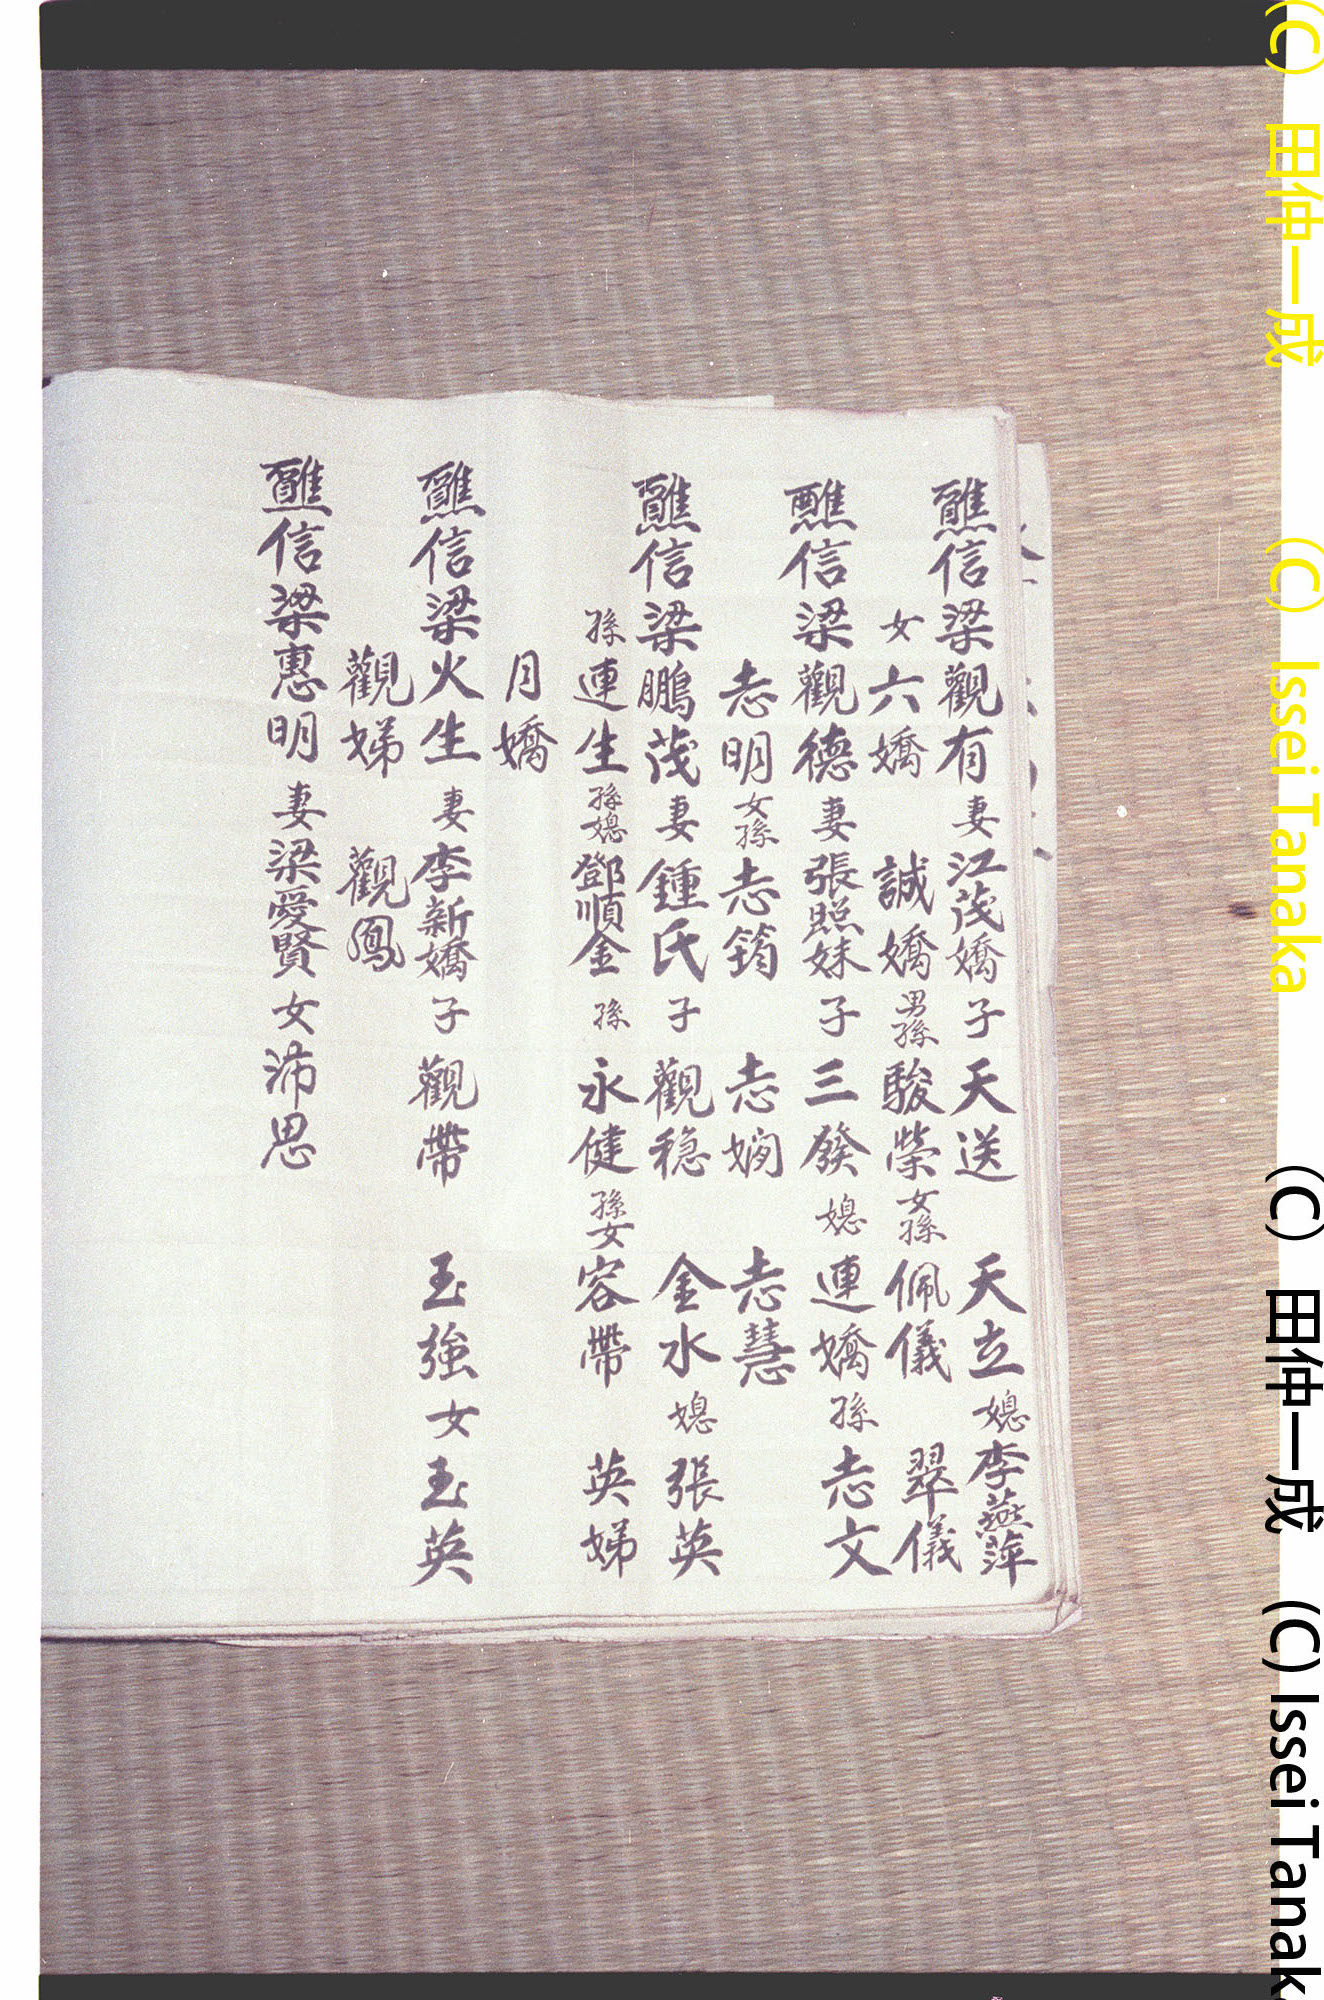 醮信梁觀有妻江茂嬌子天送 天立媳李燕萍
女六嬌 誠嬌男孫駿榮女孫佩儀 翠儀
醮信梁觀德妻張照妹子三發媳連嬌孫志文
志明女孫志筠 志嫻 志慧
醮信梁鵬茂妻鍾氏子觀穩 金水媳張英
孫連生孫媳鄧順金孫永健孫女容帶 英娣
月嬌
醮信梁火生妻李新嬌子觀帶 玉強女玉英
觀娣 觀鳳
醮信梁惠明妻梁愛賢女沛思
(C) 田仲一成 (C) Issei Tanaka
(C) 田仲一成 (C) Issei Tanak